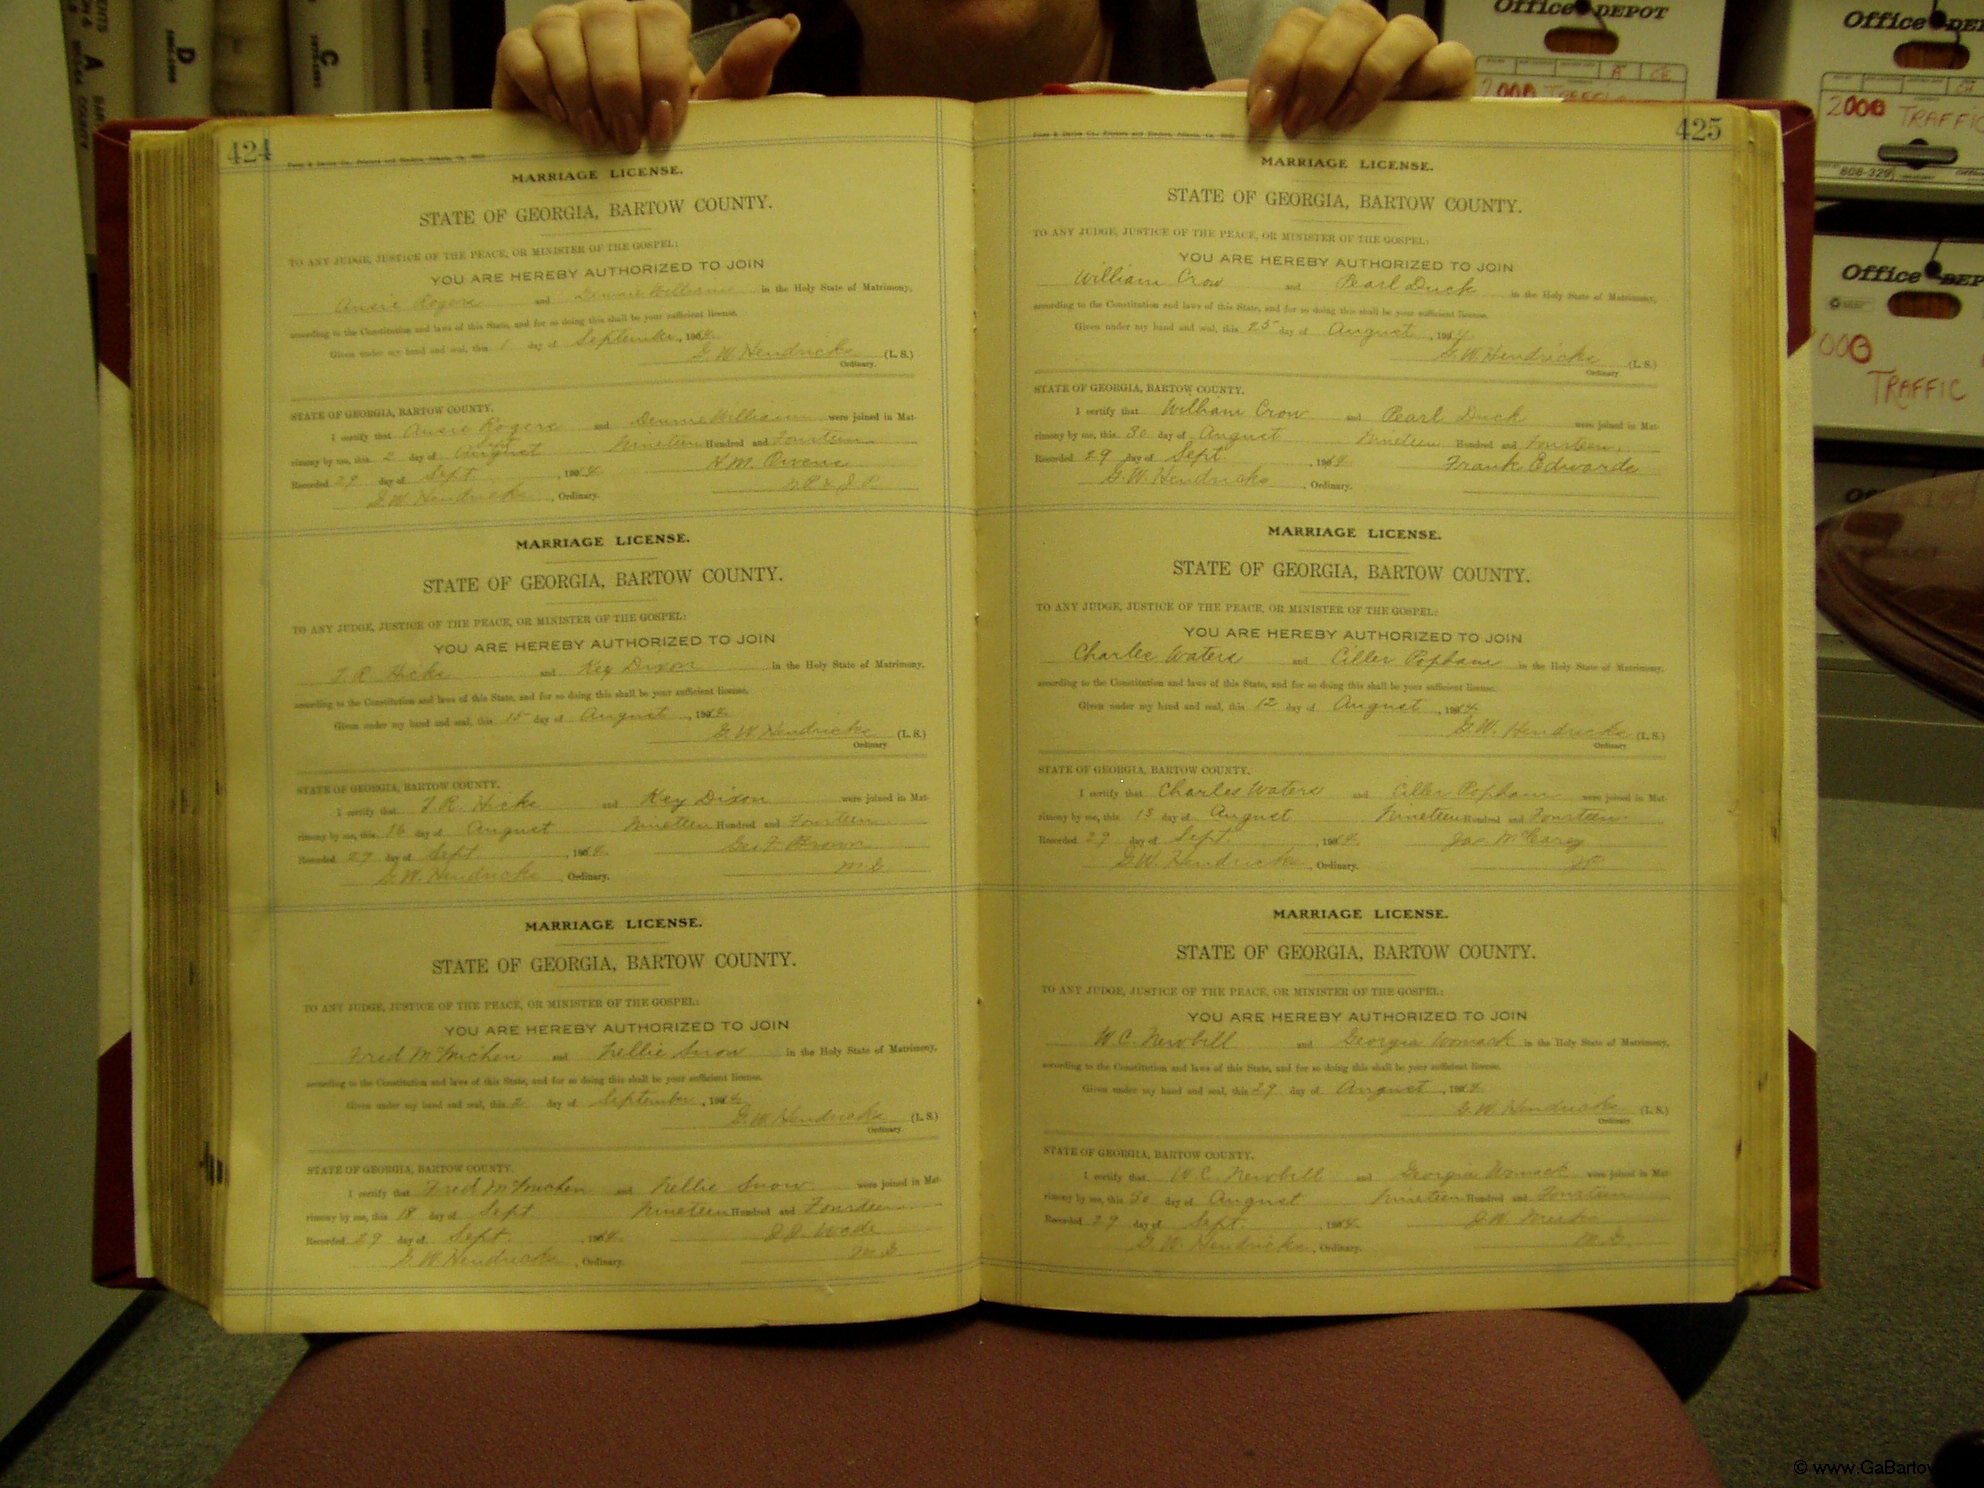 424
MARRIAGE LICENSE.
STATE OF GEORGIA, BARTOW COUNTY.
TO ANY JUDGE, JUSTICE OF THE PEACE, OR MINISTER OF THE GOSPEL:
YOU ARE HEREBY AUTHORIZED TO JOIN
Ausie Rogers and Dennie Williams in the Holy State of Matrimony,
according to the Constitution and laws of this State, and for so doing this shall be your sufficient license.
Given under my hand and seal, this 1 day of September, 1914
G. W. Hendricks (L. S.)
Ordinary.
STATE OF GEORGIA, BARTOW COUNTY.
I certify that Ausie Rogers and Dennie Williams were joined in Mat-
Sept
rimony by me, this 2 day of August Nineteen Hundred and Fourteen
Recorded 29 day of Sept, 1914. H. M. Owens
G. W. Hendricks, Ordinary. N.P. & J.P.
MARRIAGE LICENSE.
STATE OF GEORGIA, BARTOW COUNTY.
TO ANY JUDGE, JUSTICE OF THE PEACE, OR MINISTER OF THE GOSPEL:
YOU ARE HEREBY AUTHORIZED TO JOIN
R. Hicks and Key Dixon in the Holy State of Matrimony,
according to the Constitution and laws of this State, and for so doing this shall be your sufficient license.
Given under my hand and seal, this 15 day of August, 1914
G. W. Hendricks (L. S.)
Ordinary
STATE OF GEORGIA, BARTOW COUNTY.
I certify that R. Hicks and Key Dixon were joined in Mat-
rimony by me, this 16 day of August Nineteen Hundred and Fourteen
Recorded 29 day of Sept, 1914. Brown
G. W. Hendricks, Ordinary. M.G.
MARRIAGE LICENSE.
STATE OF GEORGIA, BARTOW COUNTY.
TO ANY JUDGE, JUSTICE OF THE PEACE, OR MINISTER OF THE GOSPEL:
YOU ARE HEREBY AUTHORIZED TO JOIN
Fred McMichen and Nellie Snow in the Holy State of Matrimony,
according to the Constitution and laws of this State, and for so doing this shall be your sufficient license.
Given under my hand and seal, this 2 day of September, 1914
G. W. Hendricks (L. S.)
Ordinary
STATE OF GEORGIA, BARTOW COUNTY.
I certify that Fred McMichen and Nellie Snow were joined in Mat-
rimony by me, this 18 day of Sept Nineteen Hundred and Fourteen
Recorded 29 day of Sept, 1914. J. J. Wade
G. W. Hendricks, Ordinary. M.G.
425
MARRIAGE LICENSE.
STATE OF GEORGIA, BARTOW COUNTY.
TO ANY JUDGE, JUSTICE OF THE PEACE, OR MINISTER OF THE GOSPEL:
YOU ARE HEREBY AUTHORIZED TO JOIN
William Crow and Pearl Duck in the Holy State of Matrimony,
according to the Constitution and laws of this State, and for so doing this shall be your sufficient license.
Given under my hand and seal, this 25 day of August, 1914
G. W. Hendricks (L. S.)
Ordinary.
STATE OF GEORGIA, BARTOW COUNTY.
I certify that William Crow and Pearl Duck were joined in Mat-
rimony by me, this 30 day of August Nineteen Hundred and Fourteen.
Recorded 29 day of Sept., 1914. Frank Edwards
G. W. Hendricks, Ordinary.
MARRIAGE LICENSE.
STATE OF GEORGIA, BARTOW COUNTY.
TO ANY JUDGE, JUSTICE OF THE PEACE, OR MINISTER OF THE GOSPEL:
YOU ARE HEREBY AUTHORIZED TO JOIN
Charlee Waters and Ciller Popham in the Holy State of Matrimony,
according to the Constitution and laws of this State, and for so doing this shall be your sufficient license.
Given under my hand and seal, this 12 day of August, 1914.
G. W. Hendricks (L. S.)
Ordinary
STATE OF GEORGIA, BARTOW COUNTY.
I certify that Charles Waters and Ciller Popham were joined in Mat-
rimony by me, this 13 day of August Nineteen Hundred and Fourteen.
Recorded 29 day of Sept., 1914. Jas McCarey
G. W. Hendricks, Ordinary. JP.
MARRIAGE LICENSE.
STATE OF GEORGIA, BARTOW COUNTY.
TO ANY JUDGE, JUSTICE OF THE PEACE, OR MINISTER OF THE GOSPEL:
YOU ARE HEREBY AUTHORIZED TO JOIN
W. C. Newbill and Georgia Womack in the Holy State of Matrimony,
according to the Constitution and laws of this State, and for so doing this shall be your sufficient license.
Given under my hand and seal, this 29 day of August, 1914.
G. W. Hendricks (L. S.)
Ordinary.
STATE OF GEORGIA, BARTOW COUNTY.
I certify that W. C. Newbill and Georgia Womack were joined in Mat-
rimony by me, this 30 day of August Nineteen Hundred and Fourteen
Recorded 29 day of Sept., 1914. J. W.
G. W. Hendricks, Ordinary. M.G.
D
A
C
Office DEPOT
2000 TRAFFIC
Office DE
2000 TRAFFIC
808-329
Office DEP
000
TRAFFIC
© www.GaBartow